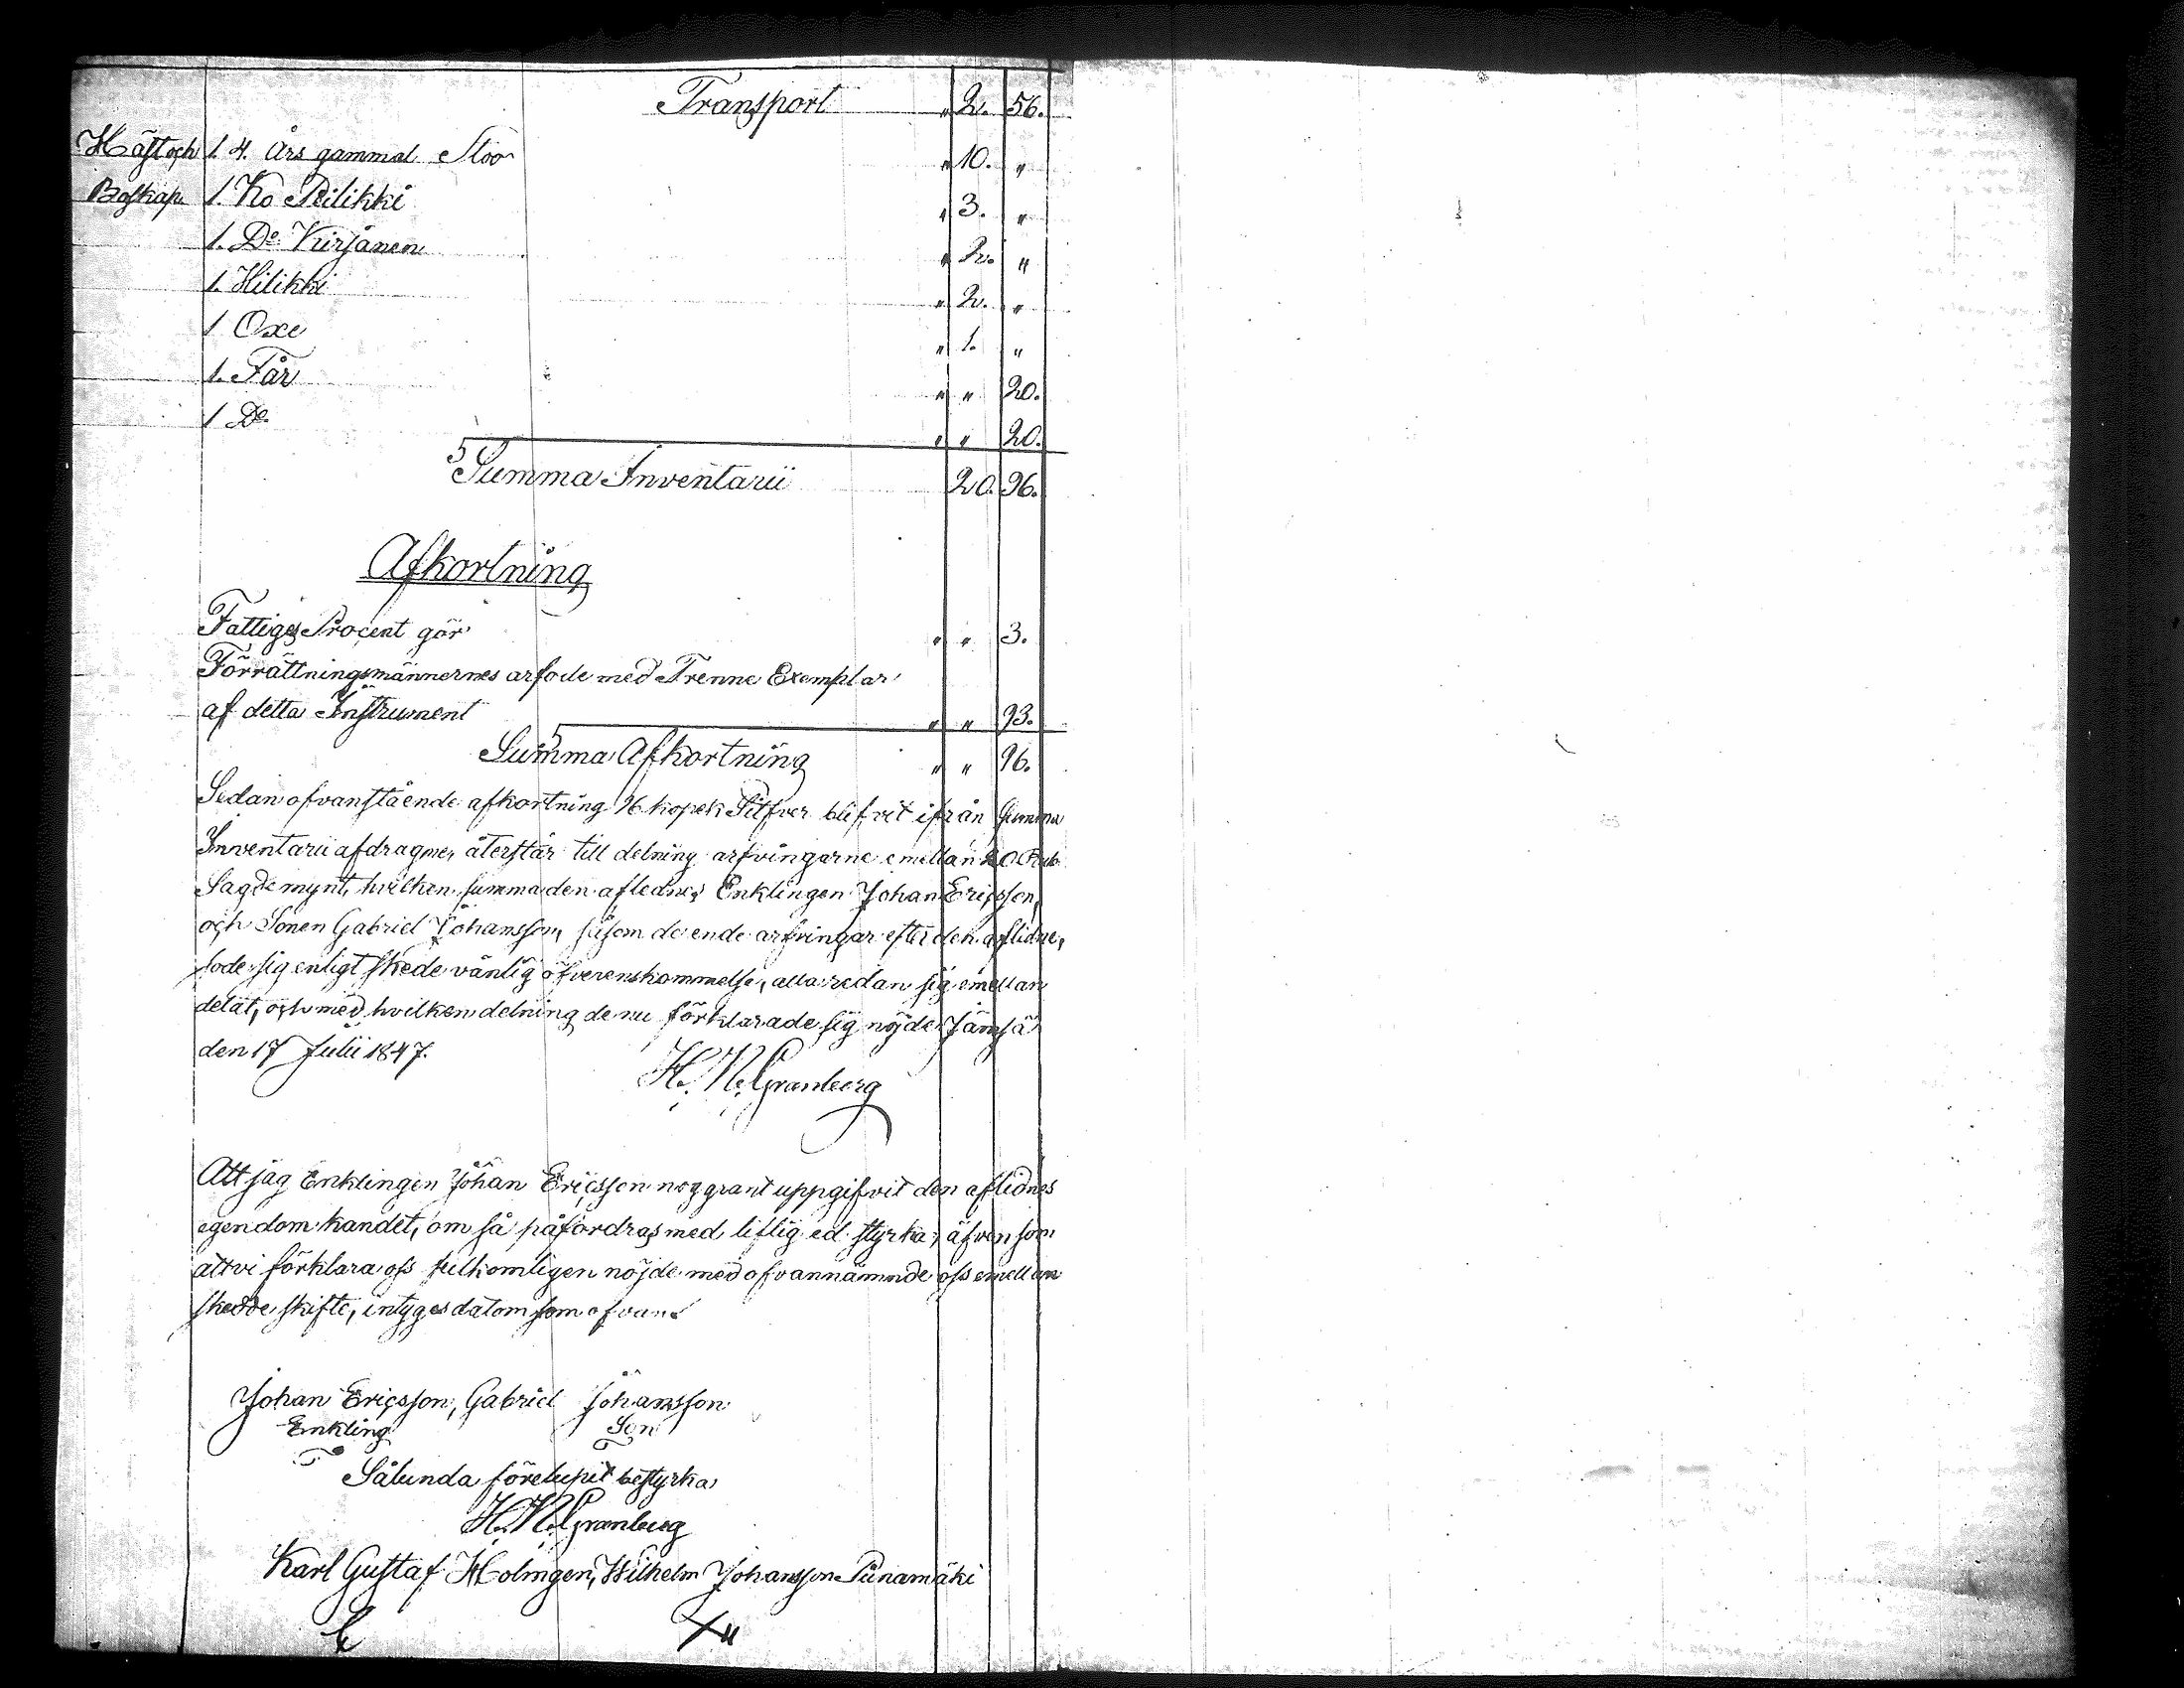 Transport " 2. 56.
Häst och 1. 4. Års gammal Stoo " 10. "
Boskap 1. Ko Piilikki " 3. "
1. Do Kirjanen " 2. "
1. Hilikki " 2. "
1 Oxe " 1. "
1. Får " " 20.
1 Do " " 20.
Summa Inventarii 20. 96.
Afkortning
Fattiges Procent gör " " 3.
Förrättningsmännernes arfode med Trenne Exemplar
af detta Instrument " " 93.
Summa Afkortning " " 96.
Sedan ofvanstående afkortning 96 kopek Silfver blifvit ifrån Summa
Inventarii afdragne, återstår till delning arfvingarne emellan 20 Rub
Sagde mynt, hvilken summa den aflednes Enklingen Johan Ericsson,
och Sonen Gabriel Johansson, såsom de ende arfvingar efter den aflidne,
sig enligt skede vänlig öfverenskommelse, alla redan sig emellan
delat, och med hvilken delning de nu förklarade sig nöjde Jämsä
den 17 Julii 1847.
H. W. Granberg
Att jag Enklingen Johan Ericsson noggrant uppgifvit den aflidnes
egendom handet, om så påfordras med liflig ed styrka; äfven som
att vi förklara oss fullkomligen nöjde med ofvannämnde oss emellan
skedde skifte, intyges datom som ofvan.
Johan Ericsson, Gabriel Johansson
Enkling Son
Sålunda förelupit bestyrka
H. W. Granberg
Karl Gustaf Holmgen, Wilhelm Johansson Punamäki